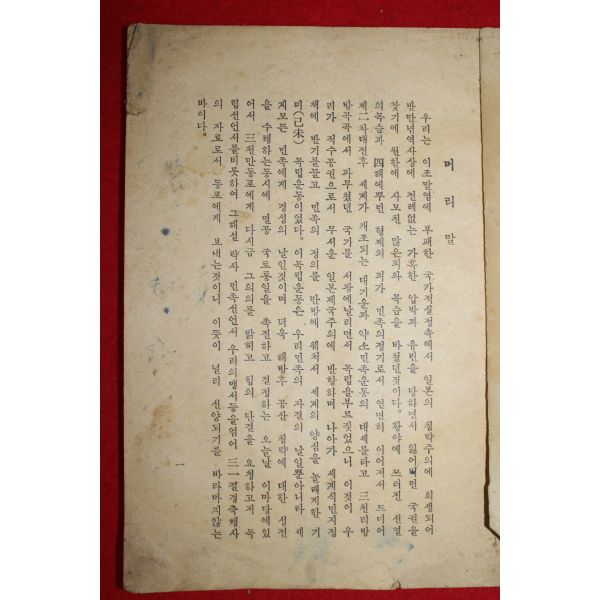 머리말
우리는 이조말엽에 부패한 국가적실정속에서 일본의 침략주의에 희생되어
반만년역사상에 전례없는 가혹한 압박과 유린을 당하면서 잃어버린 국권을
찾기에 원한에 사모친 많은피와 목숨을 바쳤던것이다. 황야에 쓰러진 선열
의목숨과 四해에뿌린 형제의 피가 민족의정기로서 연면히 이어저서 드디어
제二차대전후 세계가 개조되는 대기운과 약소민족운동의 대세를타고 三천리방
방곡곡에서 파무쳤던 국기를 서광에날리면서 독립을부르짖었으니 이것이 우
리가 적수공권으로서 무서운 일본제국주의에 반항하며 나아가 세계식민지정
책에 반기를들고 민족의 정의를 만방에 웨처서 세계의 양심을 놀래게한 기
미(己未) 독립운동이었다. 이독립운동은 우리민족의 자결의 날일뿐아니라 세
계모든 민족에게 경성의 날인것이며 더욱 해방후 공산 침략에 대한 성전
을 수행하는동시에 멸공 국토통일을 촉진하고 결정하는 오늘날 이마당에있
어서 三천만동포에게 다시금 그의의를 밝히고 힘의 단결을 요청하고저 독
립선언서를비롯하여 그해설 략사 민족선언서 우리의맹서등을엮어 三一절경축행사
의 자료로서 동포에게 보내는것이니 이뜻이 널리 선양되기를 바라마지않는
바이다.
一